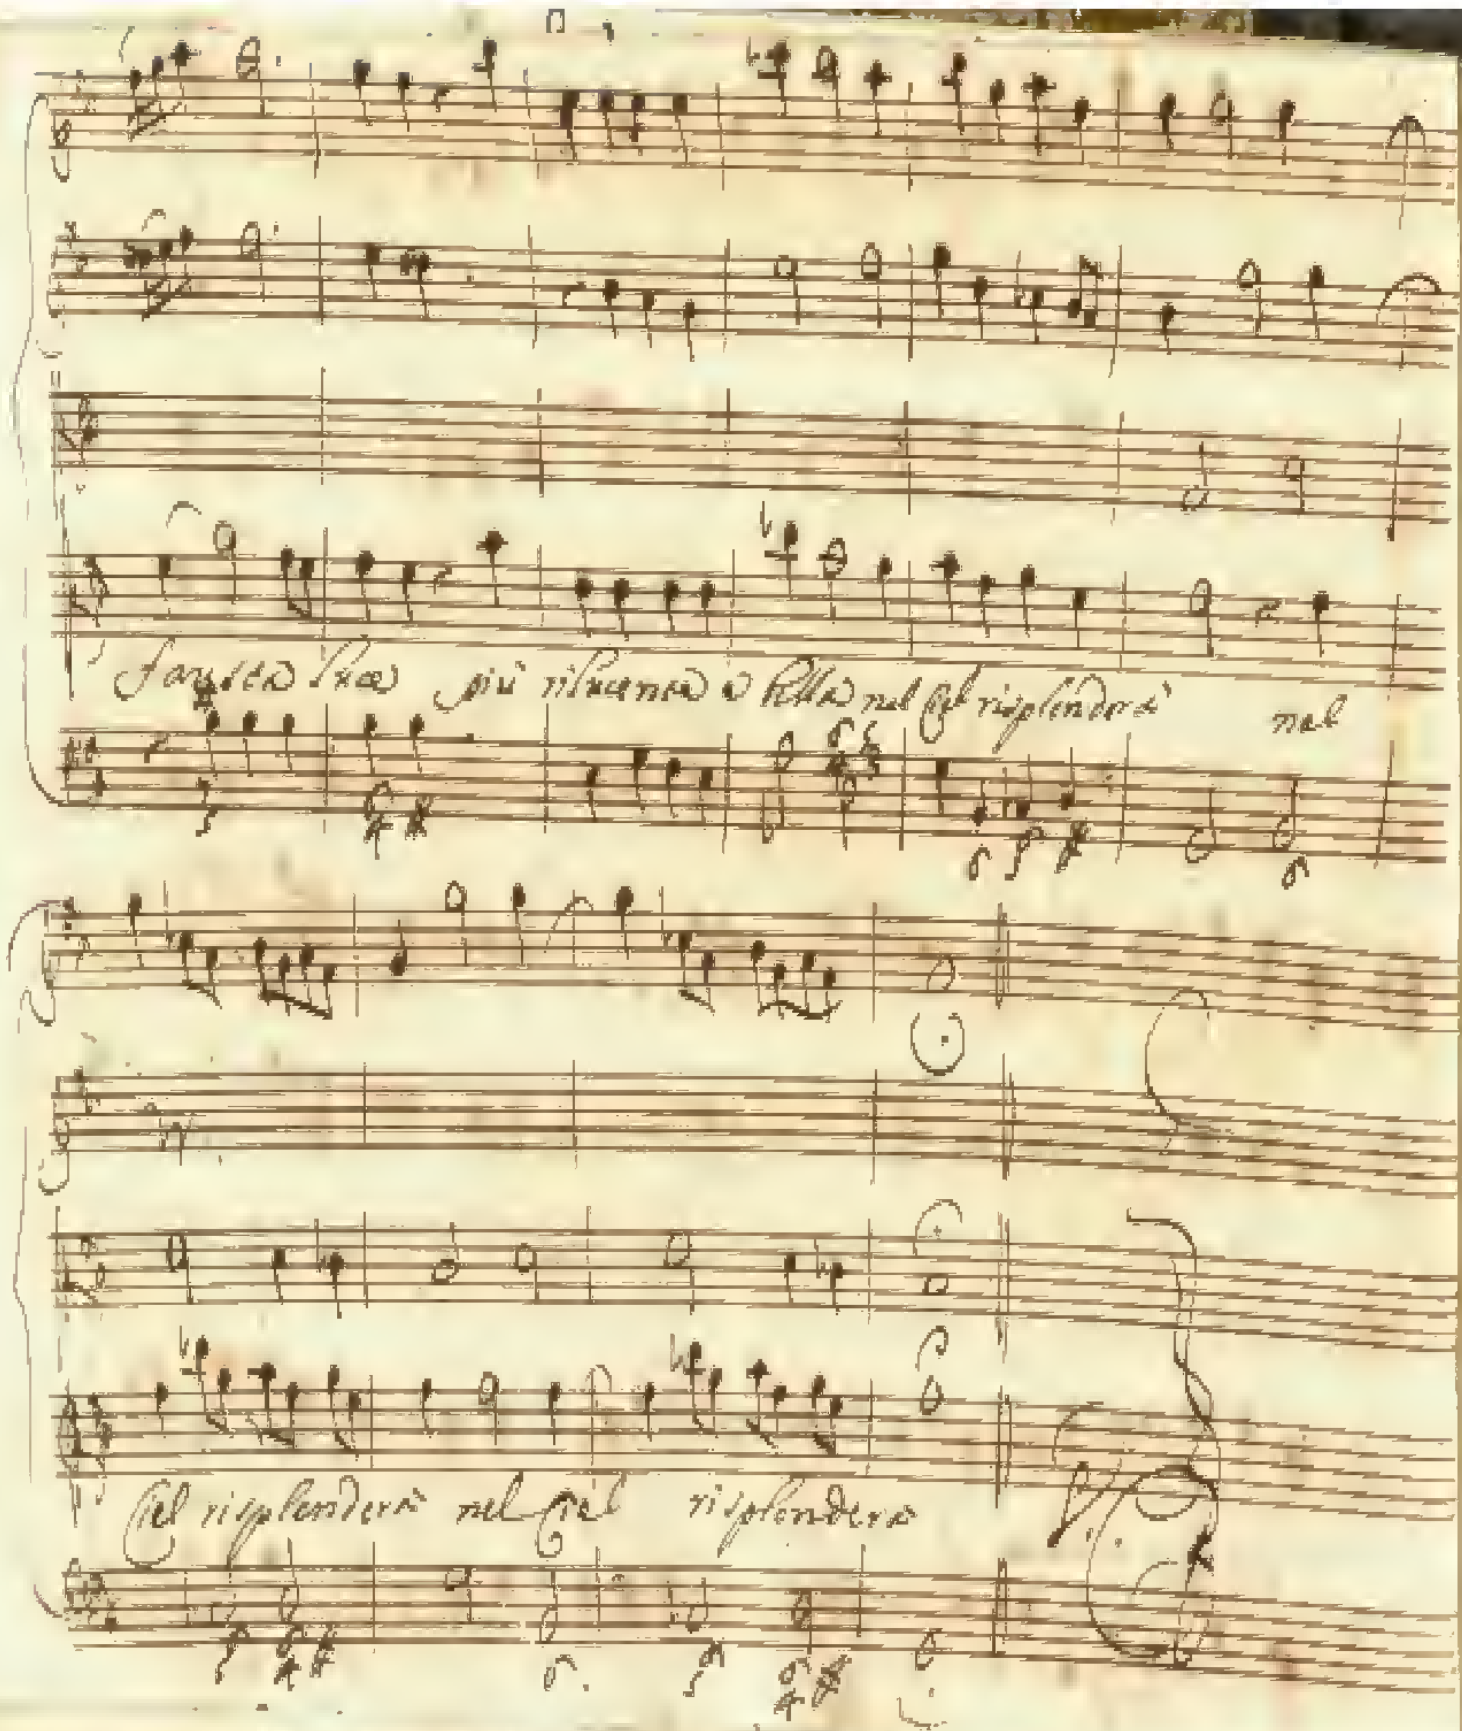 fausta luce più rilucente e bella nel Ciel risplenderà nel
Ciel risplenderà nel Ciel risplenderà